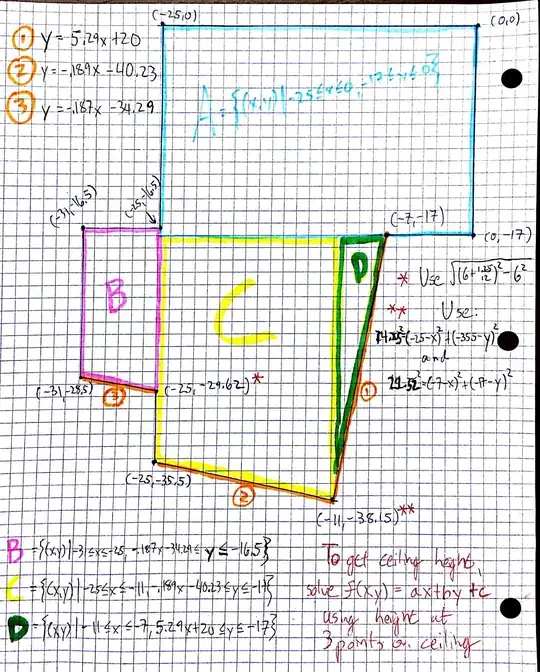 (-25,0)
(0,0)
① y=5.29x+20
② y=-.189x-40.23
③ y=-.187x-34.29
A={(x,y)|-25≤x≤0,-17≤y≤0}
(-31,-16.5)
(-25,-16.5)
(-7,-17)
(0,-17)
B
C
D
* Use √((6+1.25/12)²-6²
** Use:
=(-25-x)²+(-35.5-y)²
and
=(-7-x)²+(-17-y)²
①
(-31,-28.5)
③
(-25,-29.62)*
(-25,-35.5)
②
(-11,-38.15)**
B={(x,y)|-31≤x≤-25,-.187x-34.29≤y≤-16.5}
C={(x,y)|-25≤x≤-11,-.189x-40.23≤y≤-17}
D={(x,y)|-11≤x≤-7,5.29x+20≤y≤-17}
To get ceiling height,
solve f(x,y)=ax+by+c
using height at
3 points on ceiling